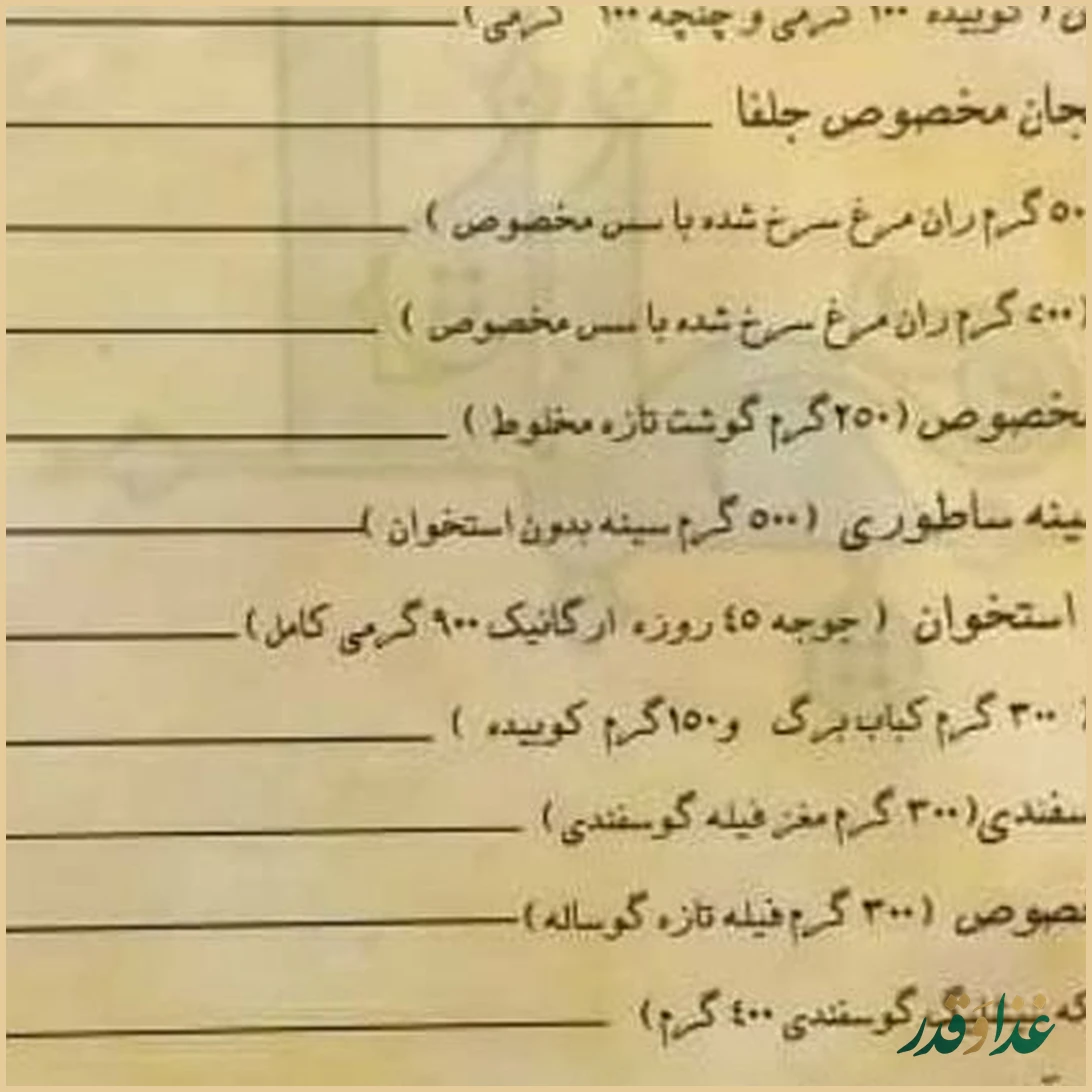 کوبیده ۱۰۰ گرمی و چنچه ۱۰۰ گرمی)
جان مخصوص جلفا
گرم ران مرغ سرخ شده با سس مخصوص )
گرم ران مرغ سرخ شده با سس مخصوص )
خصوص (۲۵۰ گرم گوشت تازه مخلوط )
ینه ساطوری (۵۰۰ گرم سینه بدون استخوان )
استخوان ( جوجه ٤٥ روزه ارگانیک ۹۰۰ گرمی کامل)
۳۰۰ گرم کباب برگ و ۱۵۰ گرم کوبیده )
سفندی(۳۰۰ گرم مغز فیله گوسفندی)
صوص (۳۰۰ گرم فیله تازه گوساله)
گوسفندی ٤۰۰ گرم)
غذا و قدر